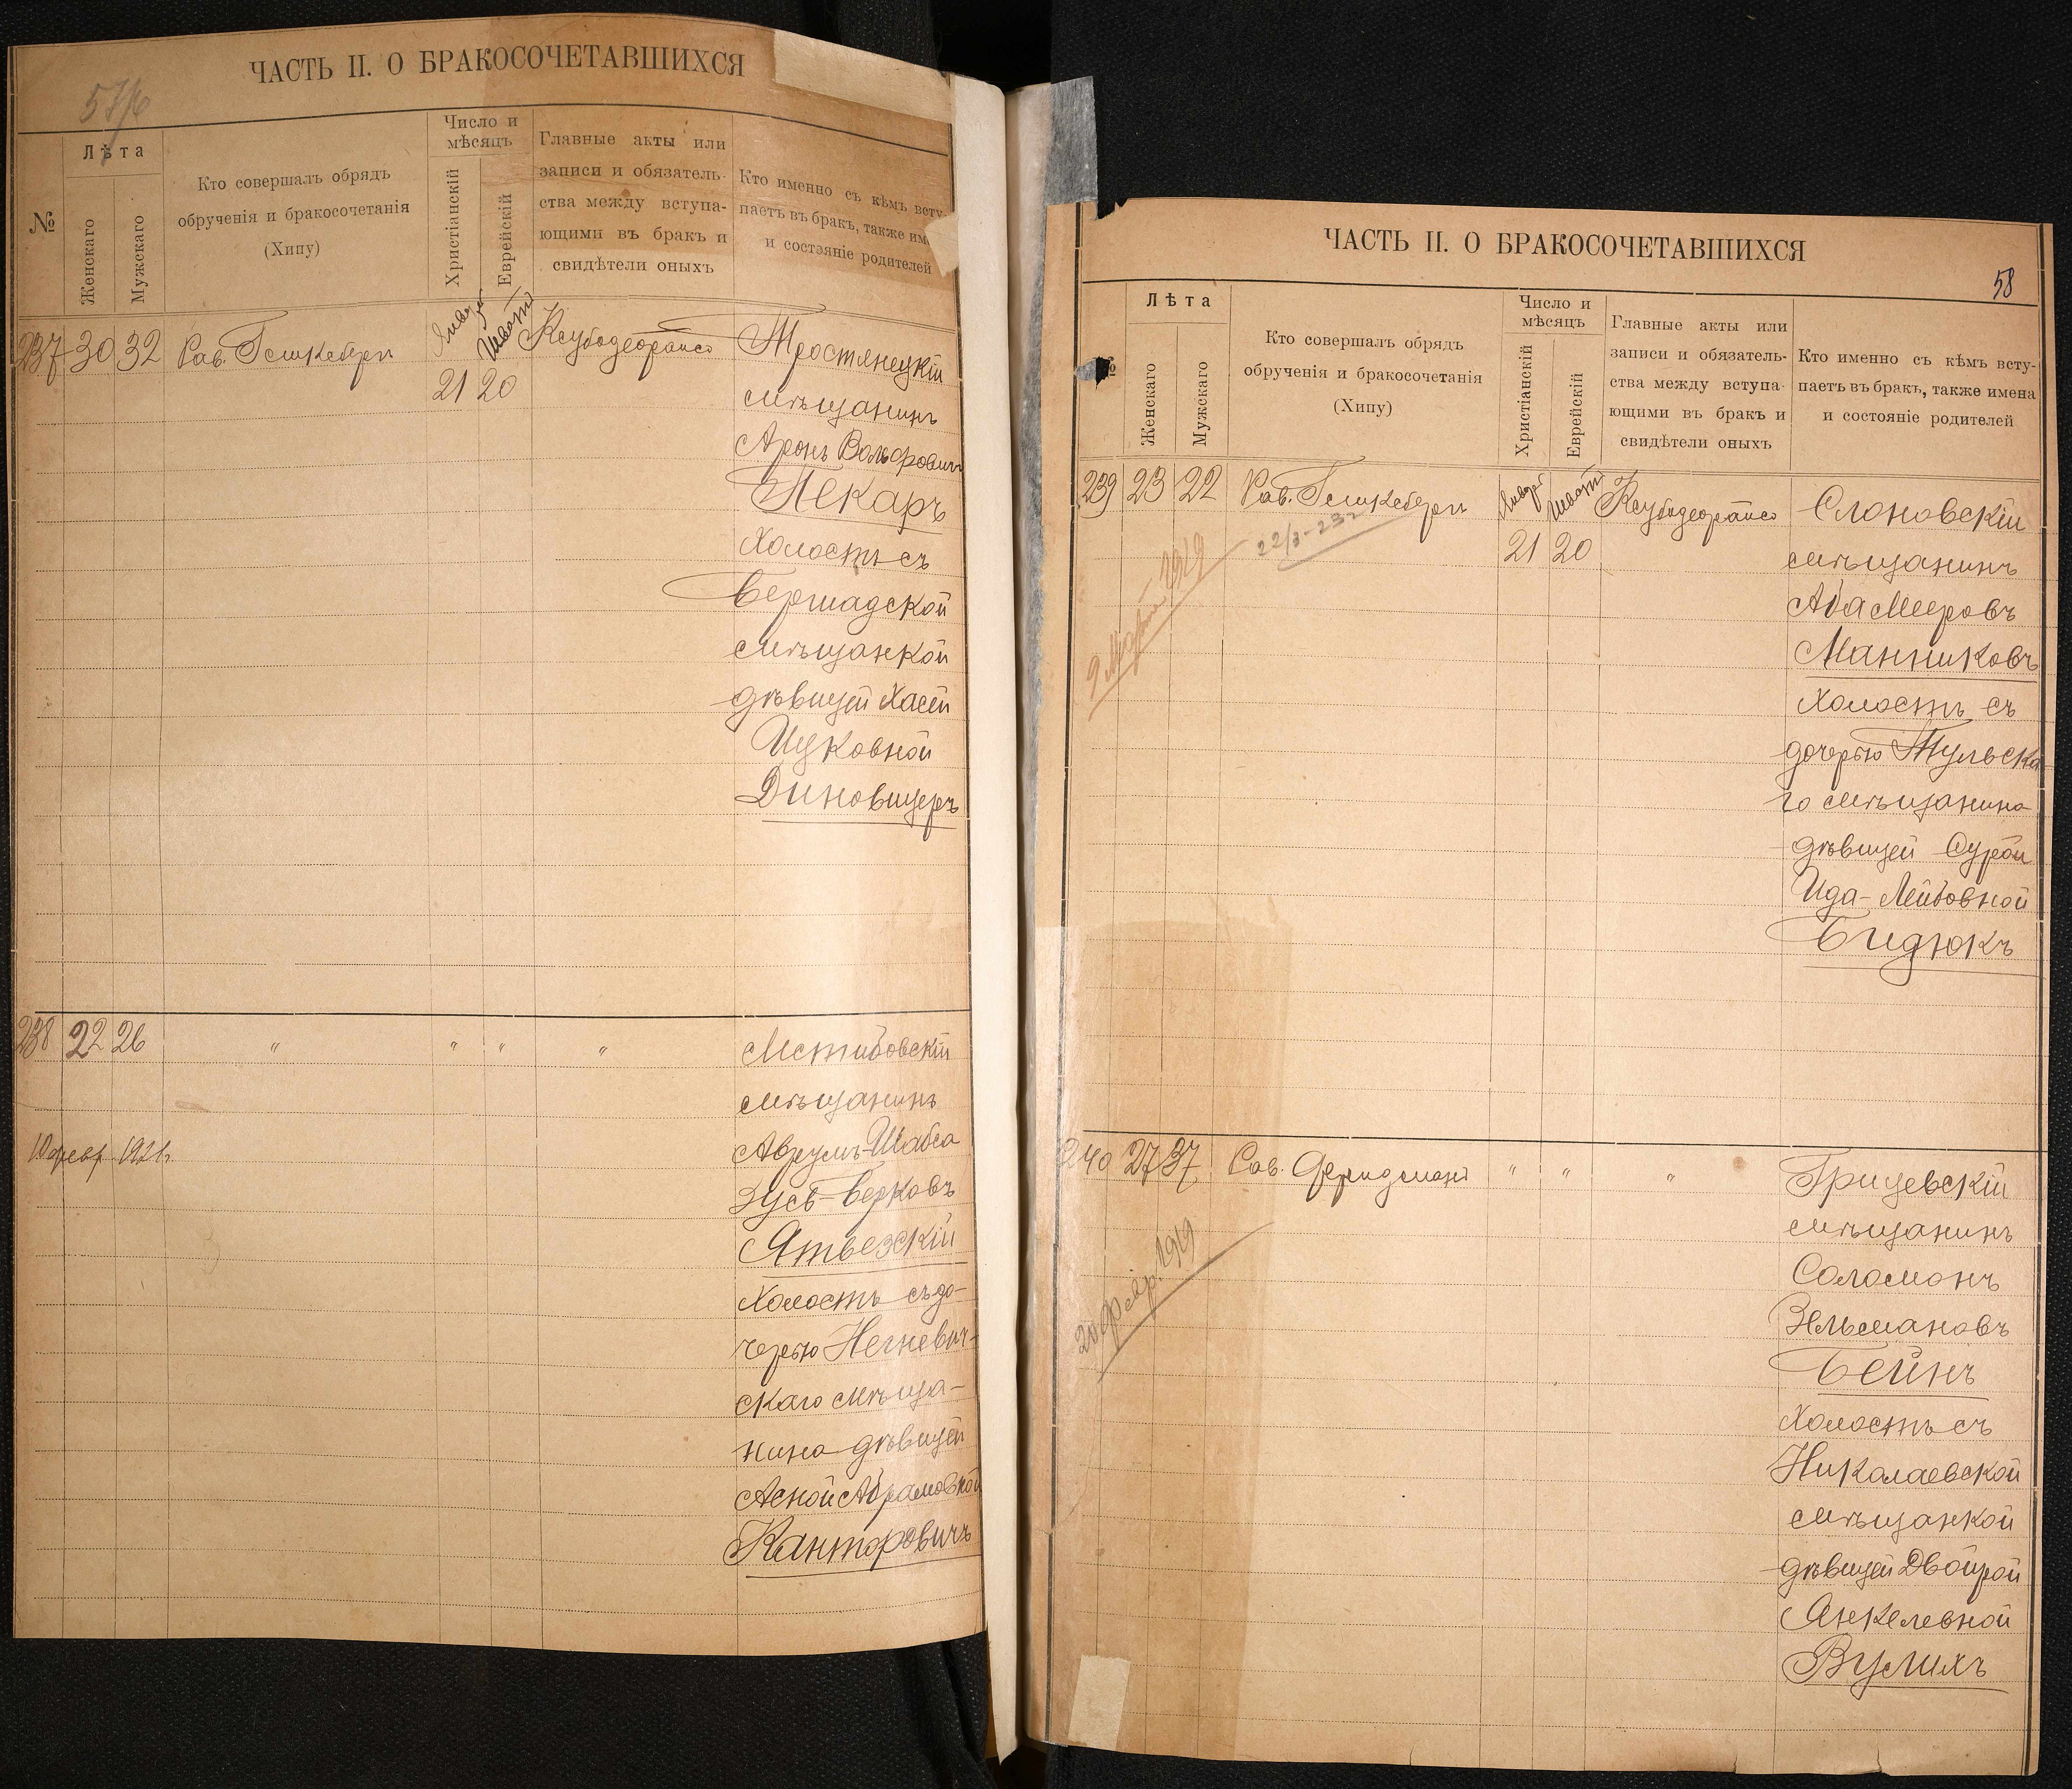 ЧАСТЬ II. О БРАКОСОЧЕТАВШИХСЯ
№
Лѣта
Женскаго
Мужскаго
Кто совершалъ обрядъ
обрученія и бракосочетанія
(Хипу)
Число и
мѣсяцъ
Христіанскій
Еврейскій
Главные акты или
записи и обязатель-
ства между вступа-
ющими въ бракъ и
свидѣтели оныхъ
Кто именно съ кѣмъ всту-
паетъ въ бракъ, также им
и состояніе родителей
237 30 32 Рав. Гольденбергъ
21 20
Тростянецкій
мѣщанинъ
Аронъ Вольфовичъ
Пекаръ
Холостъ съ
Бершадской
мѣщанкой
дѣвицей Хасей
Ицковной
Диновицеръ
238 22 26 " " " "
Мстибовскій
мѣщанинъ
10 февр. 1921г.
Аврумъ-Шабса
Зусь-Берковъ
Ятвезскій
Холостъ съ до-
черью Негневич-
скаго мѣща-
нина дѣвицей
Асной Абрамовной
Канторовичъ
ЧАСТЬ II. О БРАКОСОЧЕТАВШИХСЯ
58
№
Лѣта
Женскаго
Мужскаго
Кто совершалъ обрядъ
обрученія и бракосочетанія
(Хипу)
Число и
мѣсяцъ
Христіанскій
Еврейскій
Главные акты или
записи и обязатель-
ства между вступа-
ющими въ бракъ и
свидѣтели оныхъ
Кто именно съ кѣмъ всту-
паетъ въ бракъ, также имена
и состояніе родителей
239 23 22
Январь Шватъ
21 20
22/3-23г
9 Марта 1919
Слоновскій
мѣщанинъ
Аба Мееровъ
Манниковъ
Холостъ съ
дочерью Тульска
го мѣщанина
дѣвицей Сурой
Ида-Лейбовной
Бидюкъ
240 27 37 Рав. Фридманъ " " "
20 февр. 1919
Грицевскій
мѣщанинъ
Соломонъ
Зельмановъ
Бейнъ
Холостъ съ
Николаевской
мѣщанкой
дѣвицей Двойрой
Янкелевной
Вулихъ